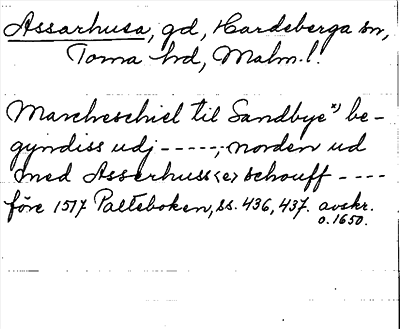 Assarhusa, gd, Hardeberga sn,
Torna hd, Malm.l.
Marcheschiel til Sandbye*) be-
gyndiss udj -----, norden ud
med Asserhuss<e> schouff ----
före 1517 Palteboken, ss. 436, 437. avskr.
o.1650.